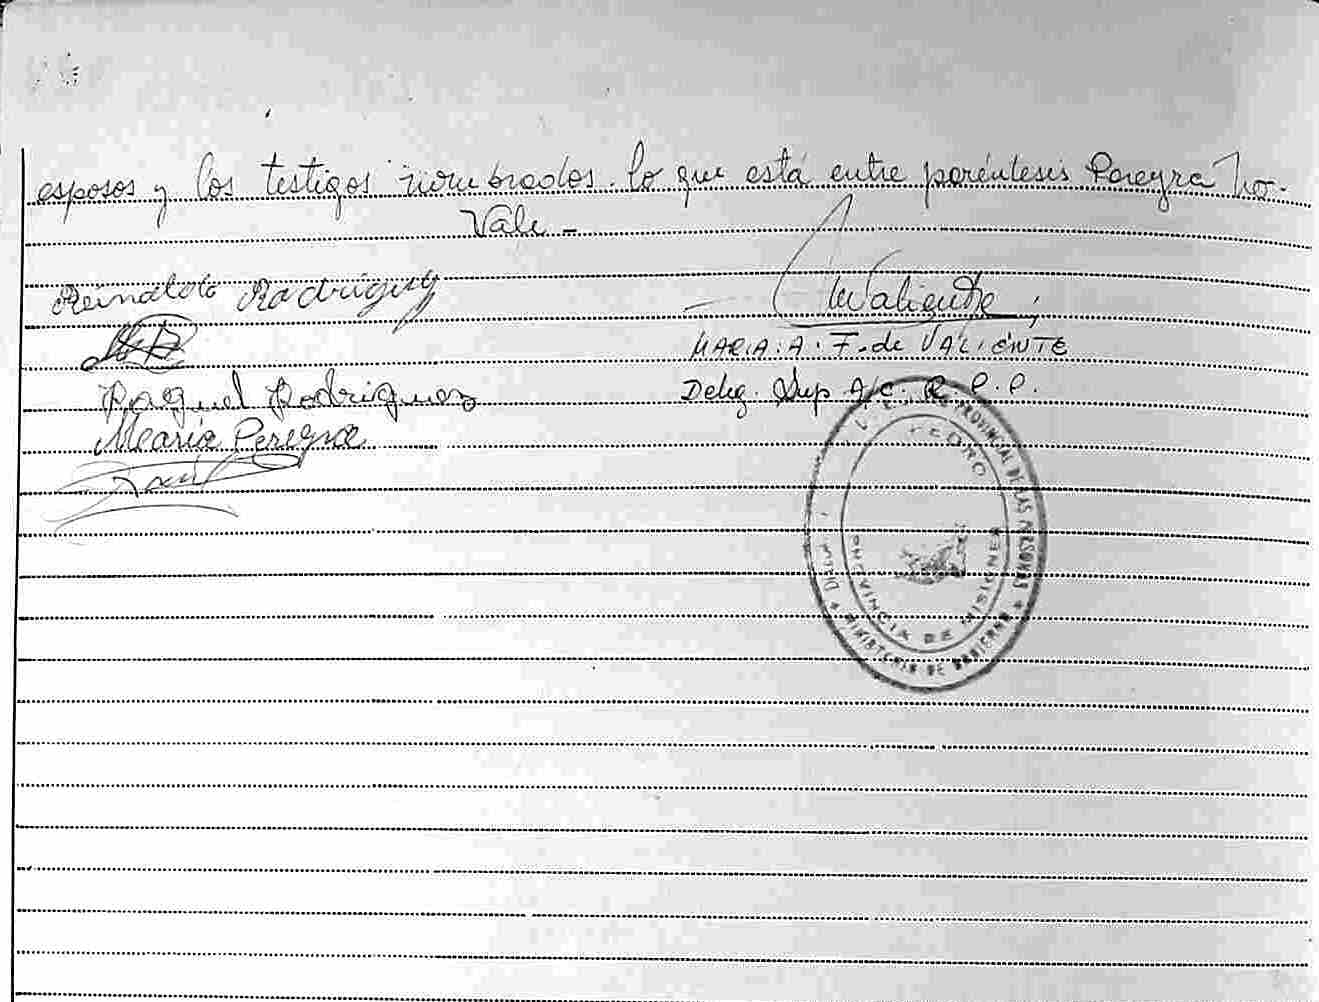 esposos y los testigos nombrados. lo que está entre paréntesis Pereyra No.
Vale -
Reinaldo Rodriguez
Raquel Rodriguez
Maria Pereyra
Valiente
MARIA. A. F. de VALIENTE
Deleg. Sup A/C. R. P. P.
PROVINCIAL DE LAS PERSONAS
PEDRO
PROVINCIA DE MISIONES
MINISTERIO DE GOBIERNO